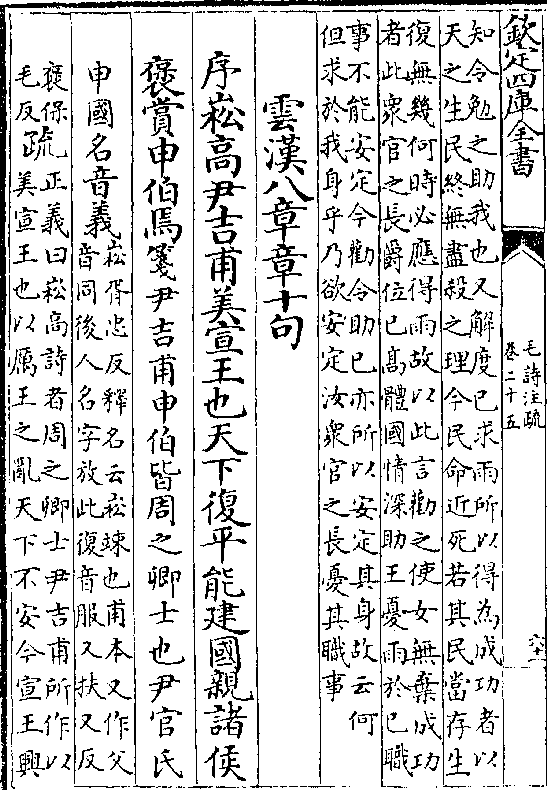 欽定四庫全書
毛詩注疏
卷二十五
六十
知令勉之助我也又解度已求雨所以得為成功者以
天之生民終無盡殺之理今民命近死若其民當存生
復無幾何時必應得雨故以此言勸之使女無棄成功
者此衆官之長爵位已髙體國情深助王憂雨於已職
事不能安定今勸令助已亦所以安定其身故云何
但求於我身乎乃欲安定汝衆官之長憂其職事
雲漢八章章十句
序崧高尹吉甫美宣王也天下復平能建國親諸侯
褒賞申伯焉箋尹吉甫申伯皆周之卿士也尹官氏
申國名音義崧胥忠反釋名云崧竦也甫本又作父
音同後人名字放此復音服又扶又反
褒保毛反疏正義曰崧高詩者周之卿士尹吉甫所作以
美宣王也以厲王之亂天下不安今宣王興